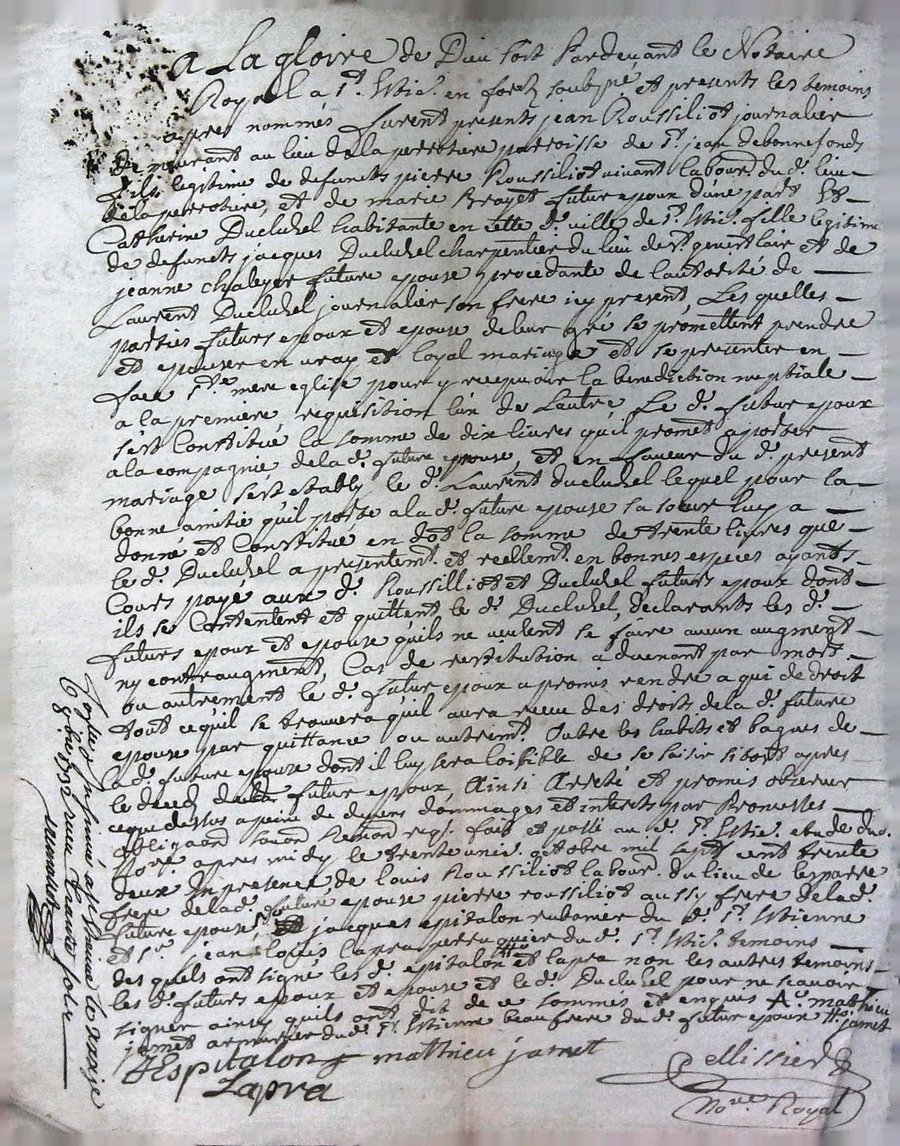 A La gloire de Dieu soit Pardevant le Notaire
Royal a St. Etie. en forez soubzne. et presents les temoins
apres nommés furent presents jean Roussiliot journalier
demeurant au lieu de la perrotiere parroisse de St. jean de bonnefonds
fils legitime de defunets pierre Roussiliot vivant labour. du d. lieu
de la perrotiere, et de marie Brayet futur epoux d'une part Et
Catherine Ducluzel habitante en cette d. ville de St. Etie. fille legitime
de defunets jacques Ducluzel charpentier du lieu de St. genest lair et de
jeanne chaleyer future epouse procedante de l'autorité de
Laurent Ducluzel journalier son frere icy present, Les quelles
parties futurs epoux et epouse de leur gré se promettent prendre
et epouser en vray et loyal mariage et se presenter en
face Ste. mere eglise pour y recepvoir la benediction nuptiale
a la premiere requisition l'un de Lautre, Le d. futur epoux
s'est Constitué la somme de dix livres qu'il promet apporter
a la compagnie de la d. future epouse, et en faveur du d. present
mariage s'est etably le d. Laurent Ducluzel lequel pour la
bonne amitié qu'il porte a la d. future epouse sa soeur luy a
donné et Constitué en dot la somme de trente livres que
le d. Ducluzel a presentemt. et reellemt. en bonnes especes ayants
Cours payé aux d. Roussilliot et Ducluzel futurs epoux dont
ils se Contentent et quittent le d. Ducluzel, declarants les d.
futurs epoux et epouse qu'ils ne veulent se faire aucun augment
ny contraugment, Cas de restitution advenant par mort
ou autrement le d. futur epoux a promis rendre a qui de droit
tout ce qu'il se trouvera qu'il aura receu des droits de la d. future
epouse par quittance ou autremt. Outre les habits et bagues de
la d. future epouse dont il luy sera loisible de se saisir sitost apres
le deceds du d. futur epoux, Ainsi Arreté et promis observer
ce que dessus a peine de depens dommages et interets par Promesses
obligaōns soum. Renon. reg. fait et passé au d. St. Etie. etude du d.
Nore. apres midy le trente unie. octobre mil sept cent trente
deux In presence de louis Roussiliot labour. du lieu de
frere de la d. future epouse pierre roussiliot aussy frere de la d.
future epouse Sr. jacques epitalon rubanier du d. St. Etienne
et Sr. jean Louis Lapra perruquier du d. St. Etie. temoins
des quels ont signé les d. epitalon et Lapra non les autres temoins
les d. futurs epoux et epouse et le d. Ducluzel pour ne scavoir
signer ainsy qu'ils ont dit de ce sommés et enquis A. mathieu
jamet armurier du d. St. Etienne beaufrere du d. futur epoux jamet
Espitalon mathieu jamet
Lapra
Pellissier
Nore. Royal
Controllé et Insinué a St. Etienne le
8bre 1732 receu trente sols